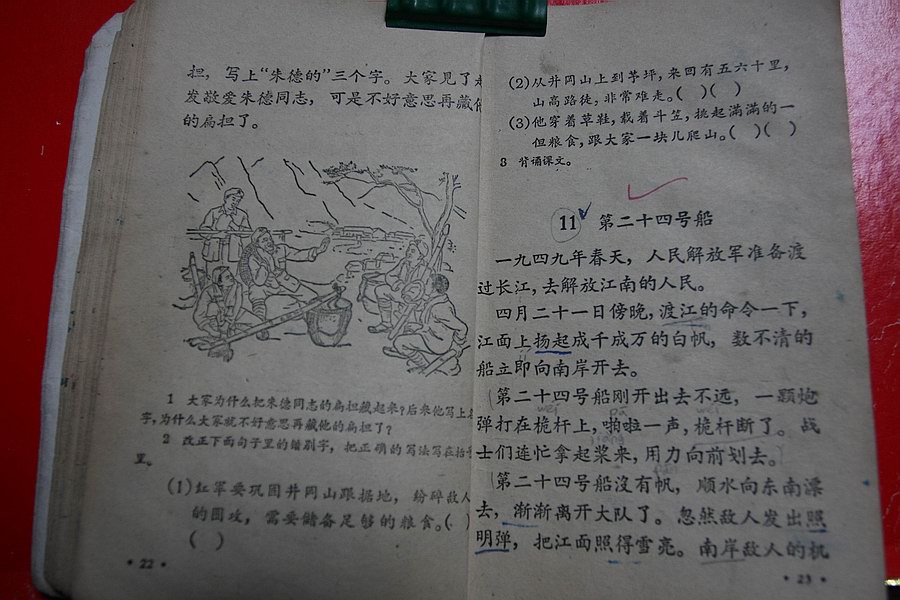 担，写上“朱德的”三个字。大家见了
发敬爱朱德同志，可是不好意思再藏他
的扁担了。
1 大家为什么把朱德同志的扁担藏起来？后来他写上
字，为什么大家就不好意思再藏他的扁担了？
2 改正下面句子里的错别字，把正确的写法写在括号
里。
(1)红军要巩固井冈山跟据地，纷碎敌人
的围攻，需要储备足够的粮食。( )
( )
• 22 •
(2)从井冈山上到茅坪，来回有五六十里，
山高路徒，非常难走。( )( )
(3)他穿着草鞋，载着斗笠，挑起满满的一
但粮食，跟大家一块儿爬山。( )( )
3 背诵课文。
11 第二十四号船
一九四九年春天，人民解放军准备渡
过长江，去解放江南的人民。
四月二十一日傍晚，渡江的命令一下，
江面上扬起成千成万的白帆，数不清的
船立即向南岸开去。
第二十四号船刚开出去不远，一颗炮
弹打在桅杆上，啪啦一声，桅杆断了。战
士们连忙拿起桨来，用力向前划去。
第二十四号船没有帆，顺水向东南漂
去，渐渐离开大队了。忽然敌人发出照
明弹，把江面照得雪亮。南岸敌人的机
• 23 •